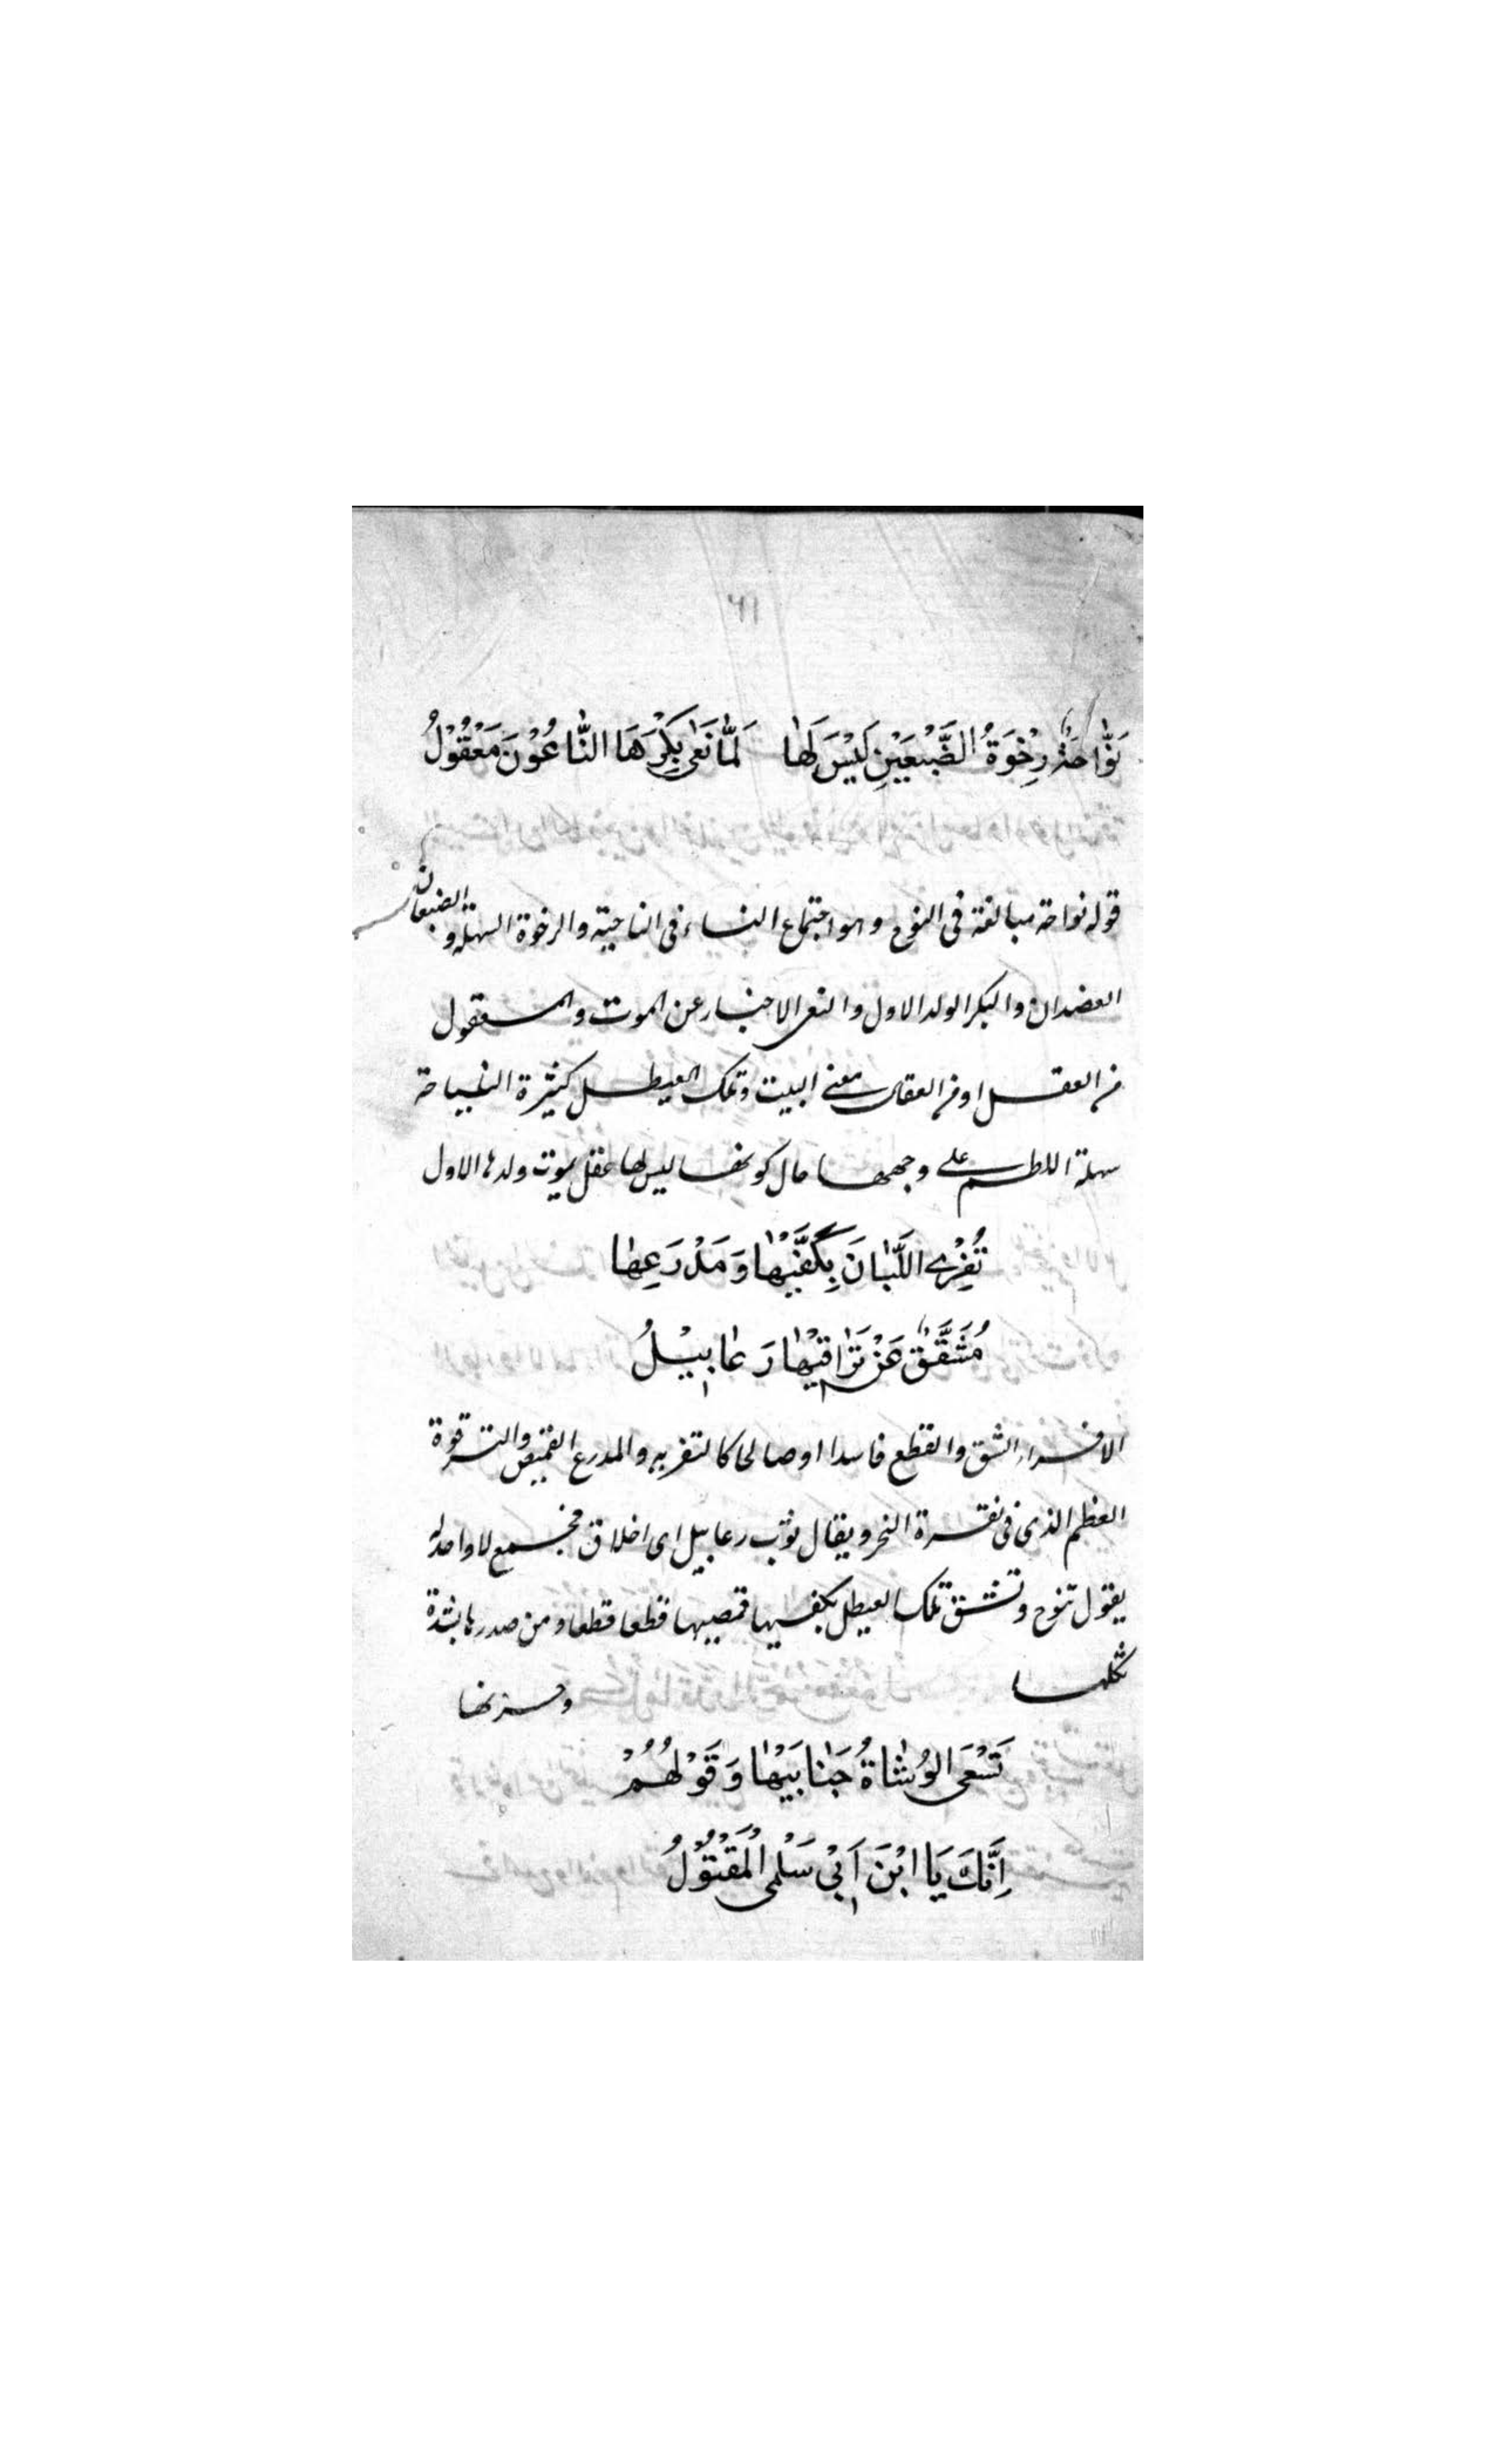 ٢١
نَوَّاحَةٌ رِخْوَةُ الضَّبْعَيْنِ لَيْسَ لَهَا لَمَّا نَعَى بِكْرَهَا النَّاعُوْنَ مَعْقُوْلُ
قوله نواحة مبالغة فى النوح وهو اجتماع النساء فى الناحية والرخوة السهلة والضبعان
العضدان والبكر الولد الاول والنعى الاخبار عن الموت والمعقول
من العقل او من العقال معنى البيت وتلك العيطل كثيرة النياحة
سهلة اللطم على وجهها حال كونها ليس لها عقل بموت ولدها الاول
تُفْرِى اللَّبَانَ بِكَفَّيْهَا وَمَدْرَعِهَا
مُشَقَّقٌ عَنْ تَرَاقِيْهَا رَعَابِيْلُ
الافراء الشق والقطع فاسدا او صالحا كالتفرية والمدرع القميص والترقوة
العظم الذى فى نقرة النحر ويقال ثوب رعابيل اى اخلاق جمع لا واحد له
يقول تنوح وتشق تلك العيطل بكفيها قميصها قطعا قطعا و من صدرها بشدة
ثكلها وحزنها
تَسْعَى الوُشَاةُ جَنَابَيْهَا وَقَوْلُهُمُ
اِنَّكَ يَا ابْنَ اَبِيْ سَلْمٰى لَمَقْتُوْلُ